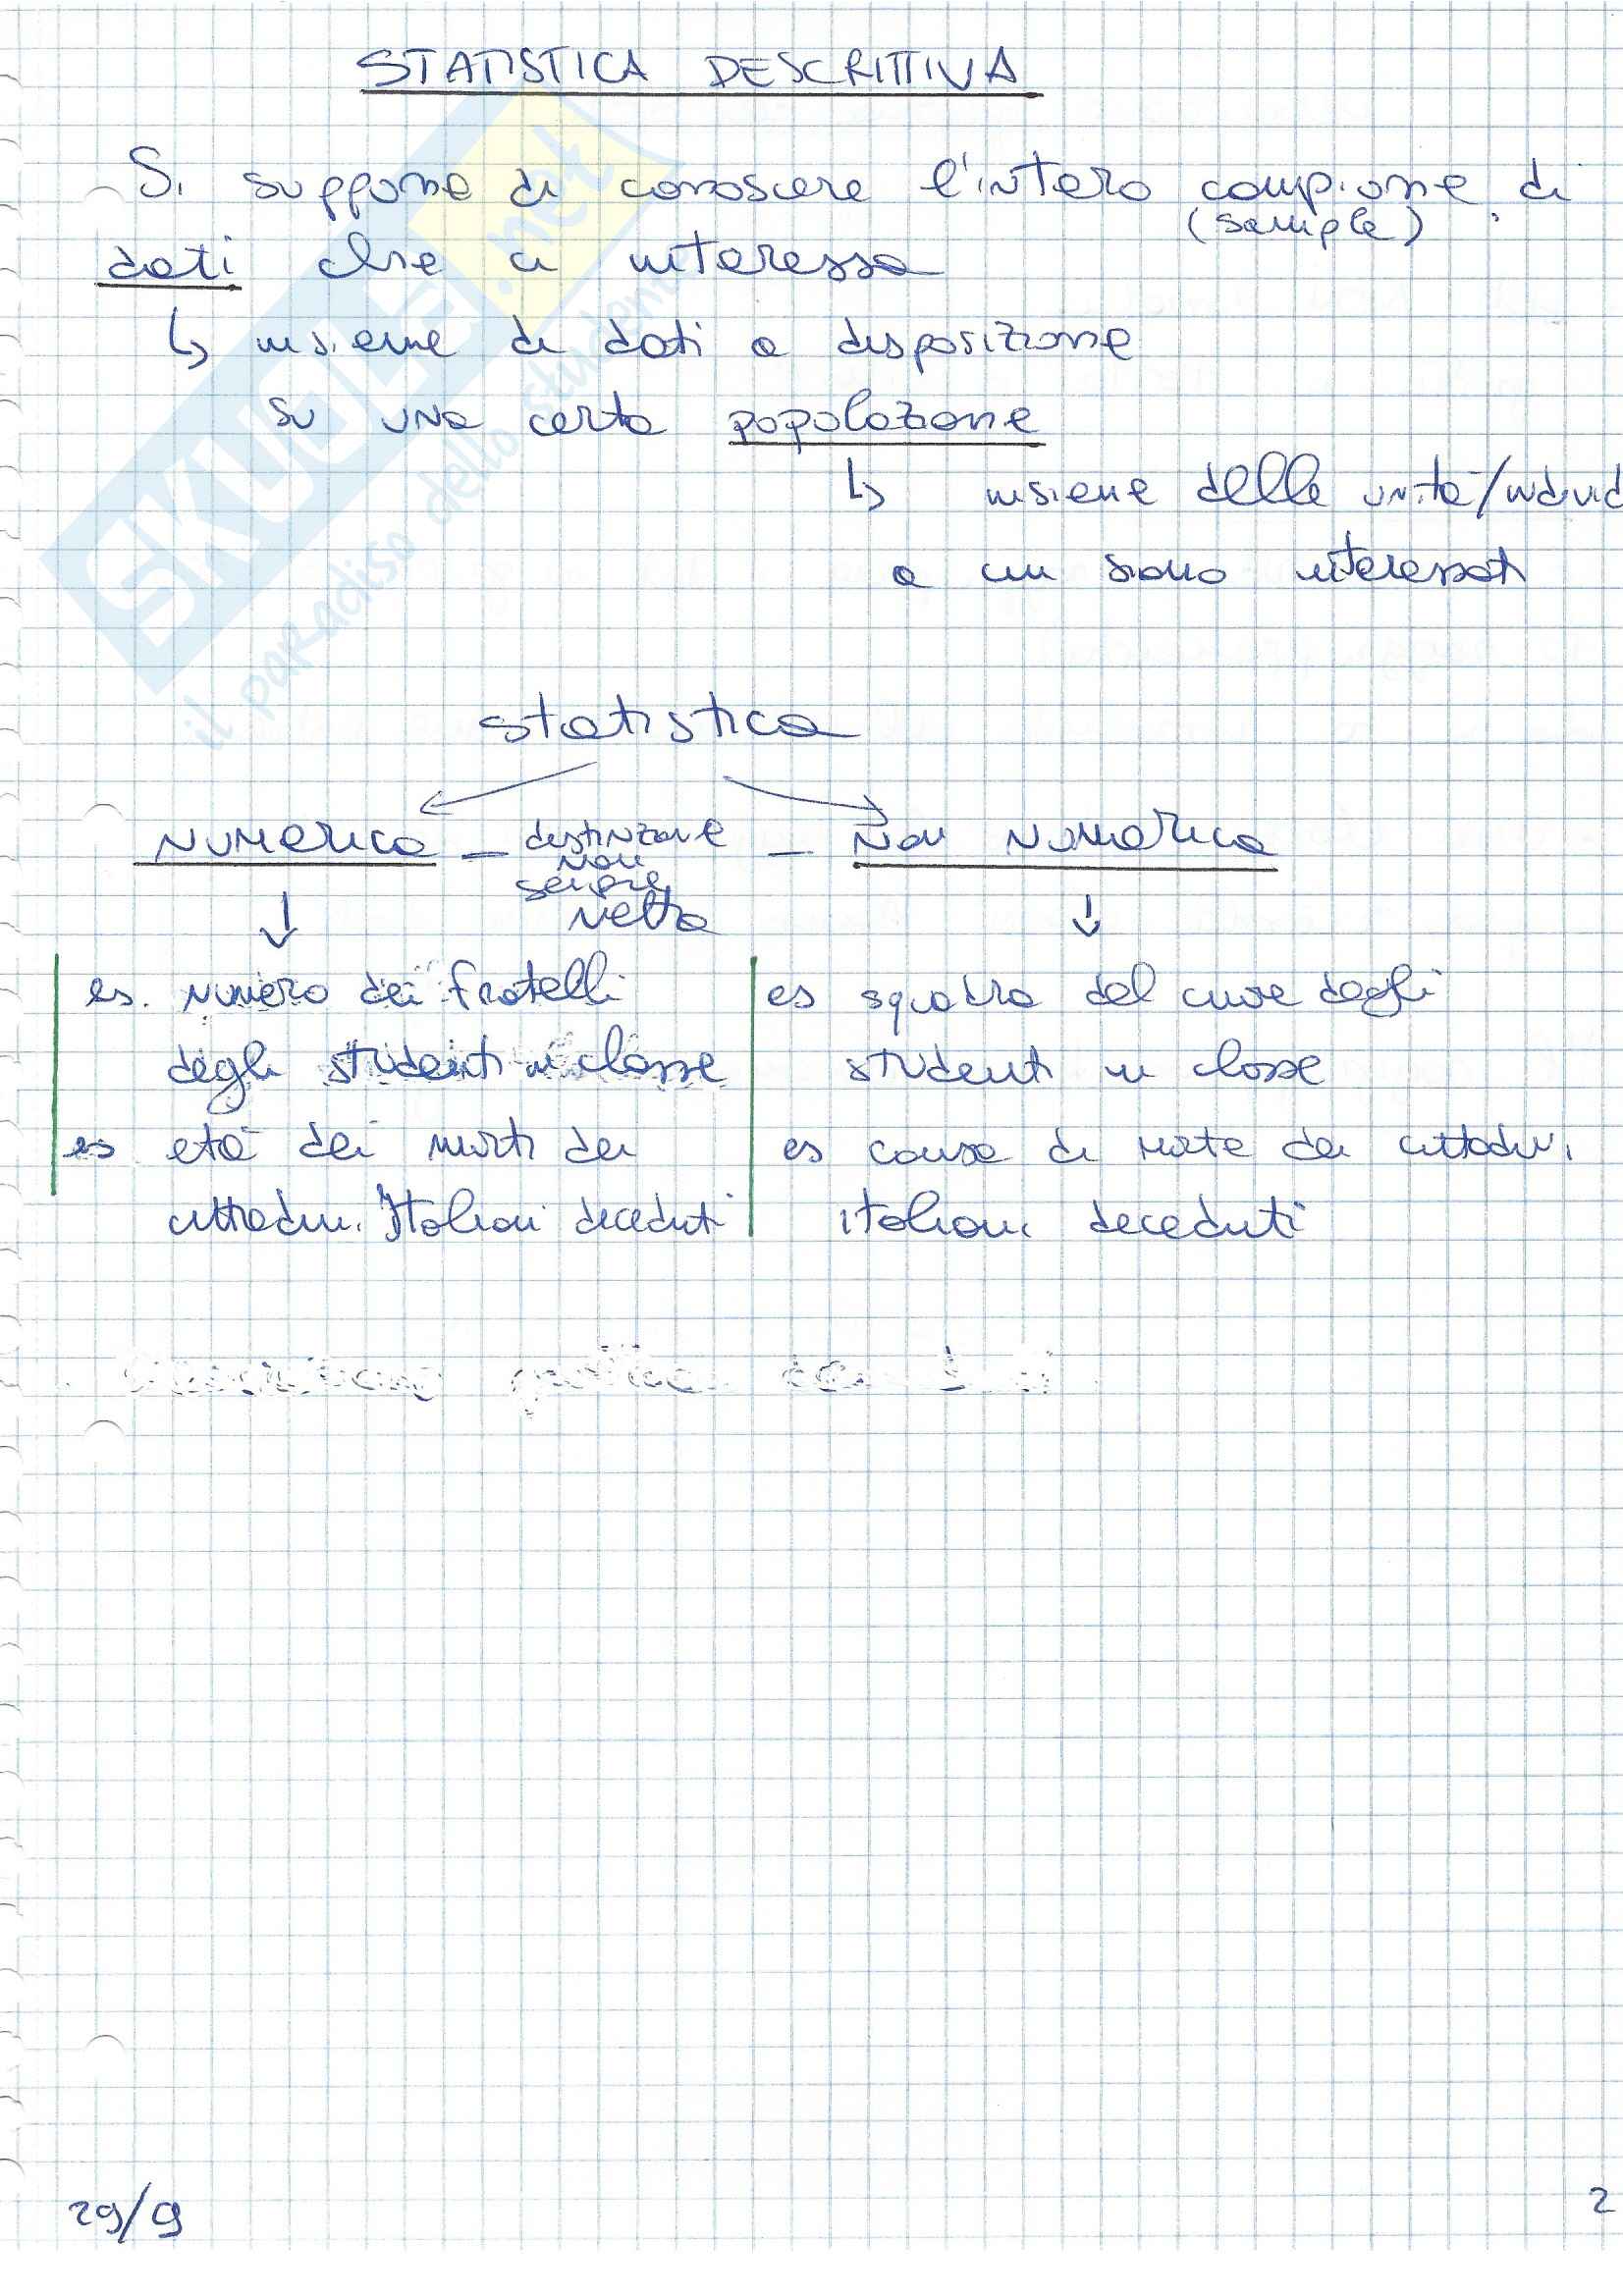 STATISTICA DESCRITTIVA
Si suppone di conoscere l'intero campione di
(sample)
dati che ci interessa
↳ insieme di dati a disposizione
su una certa popolazione
↳ insieme delle unità/individ
a cui siamo interessati
statistica
NUMERICA – distinzione – NON NUMERICA
non
sempre
netta
es. numero dei fratelli
degli studenti in classe
es età dei morti dei
cittadini Italiani deceduti
es squadra del cuore degli
studenti in classe
es causa di morte dei cittadini
italiani deceduti
29/9
2
SKUOLA.net
il paradiso dello studente